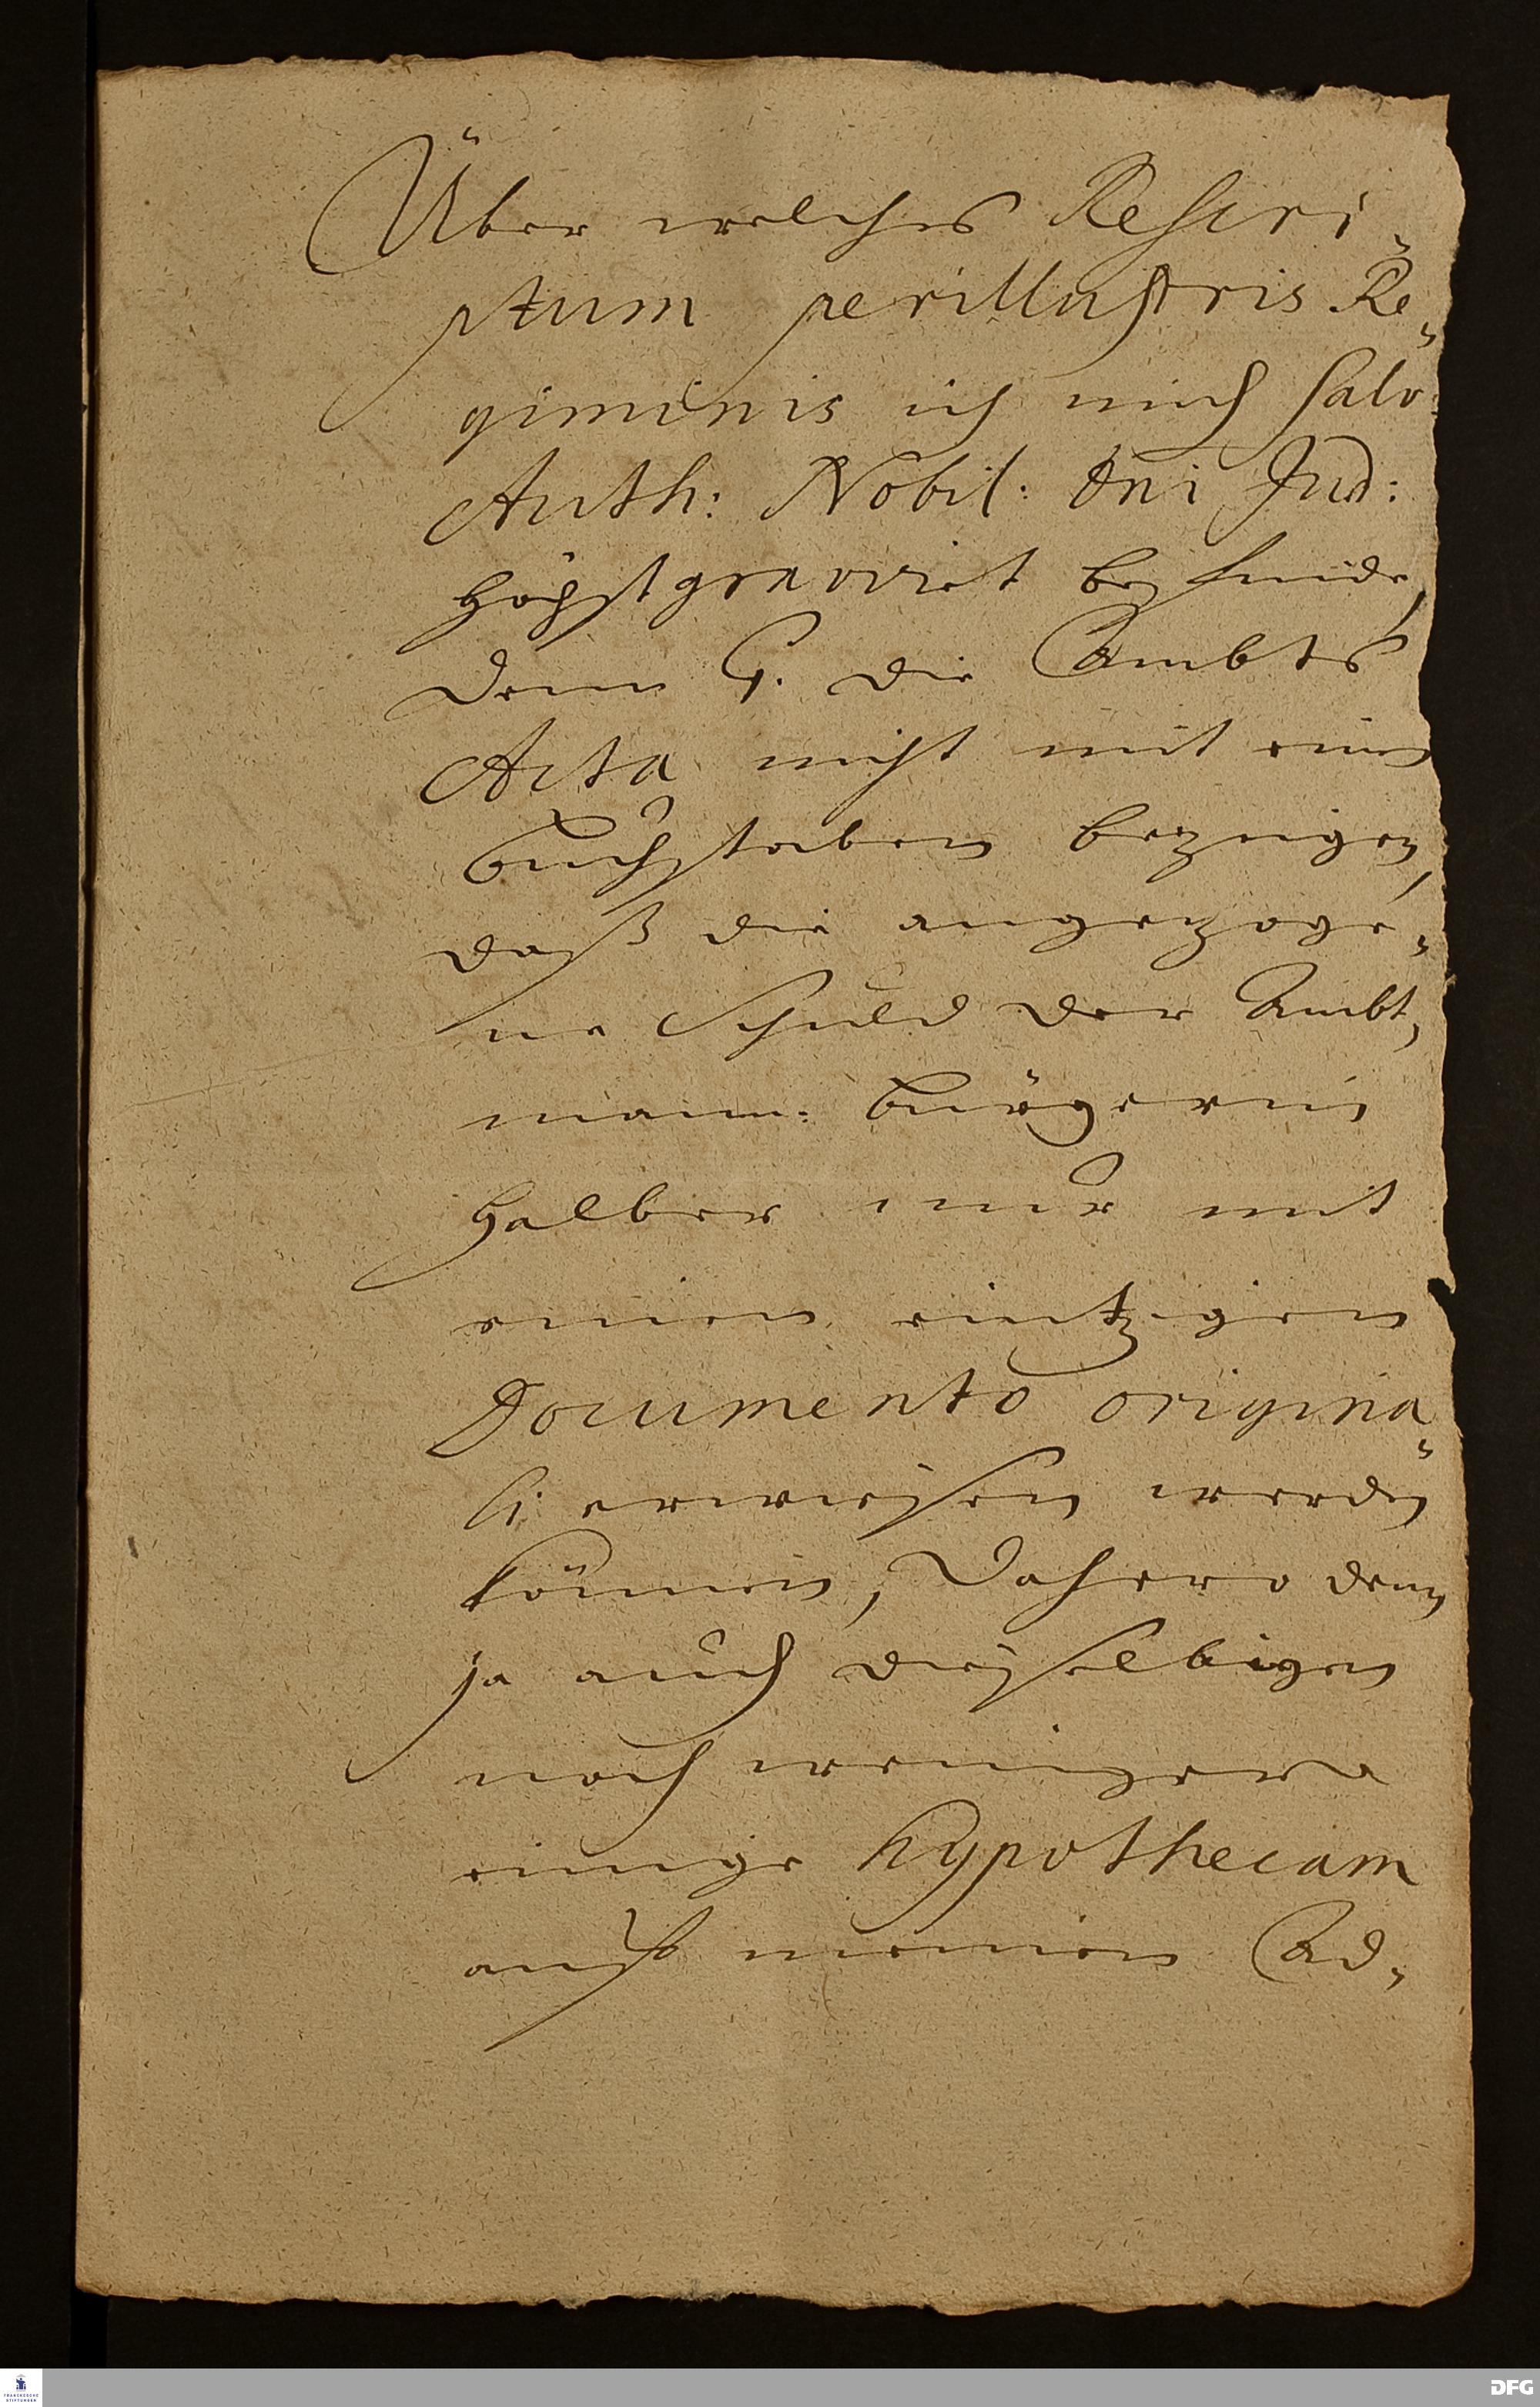 Über welches Rescri-
ptum perillustris Re-
giminis ich mich salv:
Auth: Nobil: Dni Jud:
höchst graviret befinde,
denn 1. die Ambts
Acta nicht mit einen
buchstaben bezeigen,
daß die angezoge-
ne Schuld der Ambt-
mann: bürgerin
halber nur mit
einen eintzigen
Documento origina-
li erwiesen werden
können, Dahero denn
ja auch dieselbigen
noch weniger
einige hypothecam
auff meinen Ad-
FRANCKESCHE
STIFTUNGEN
DFG